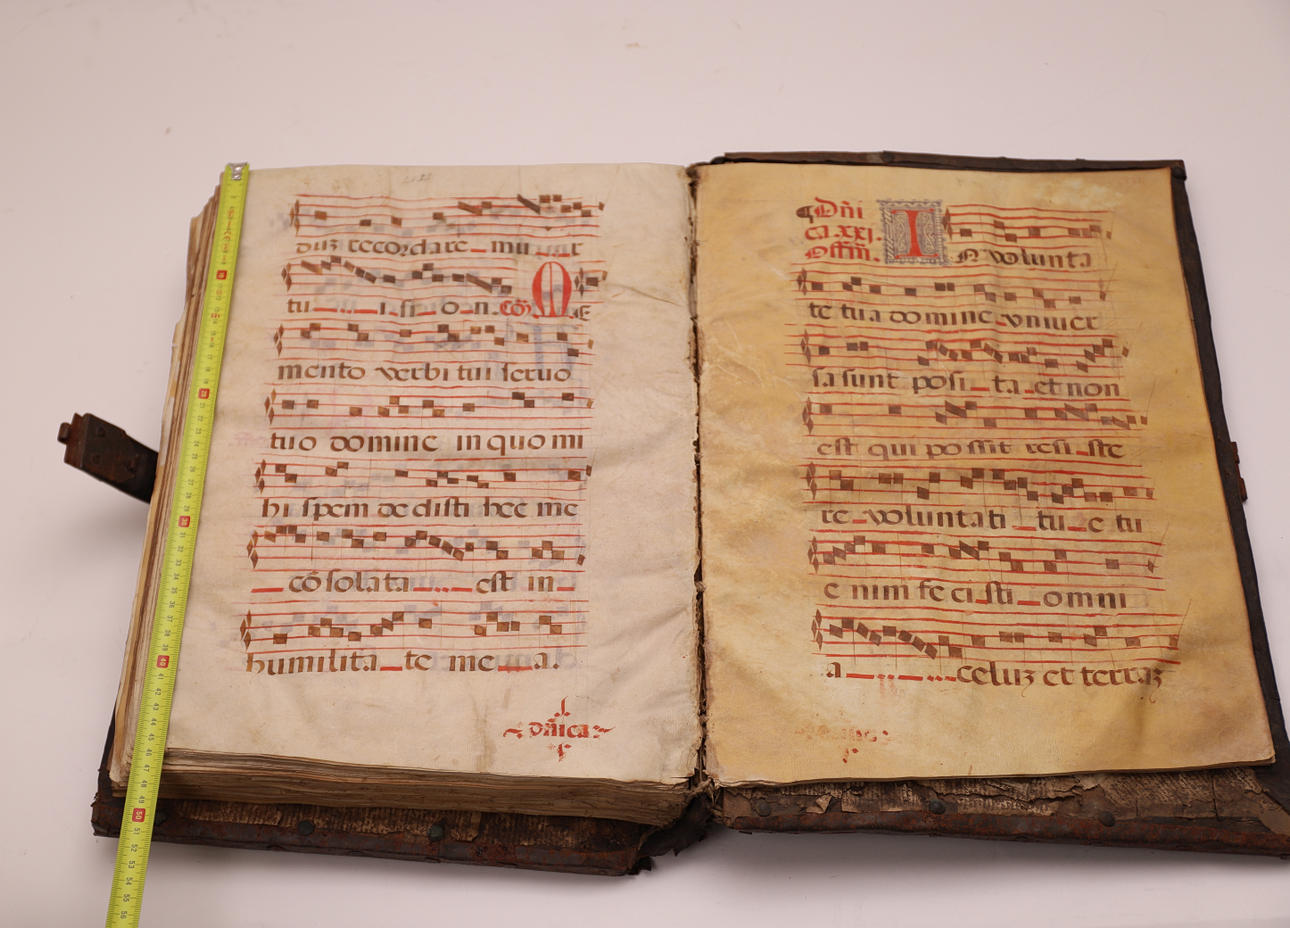 duz recordare mu
tu i si o n. Cõ. M E
mento verbi tui seruo
tuo domine in quo mi
hi spem dedisti hec me
cõsolata est in
humilitate mea.
dñica
Dñi
ca XXI.
Offm̃.
I N volunta
te tua domine vniuer
sa sunt posita et non
est qui possit resiste
re voluntati tu e tu
enim fecisti omni
a celuz et terraz